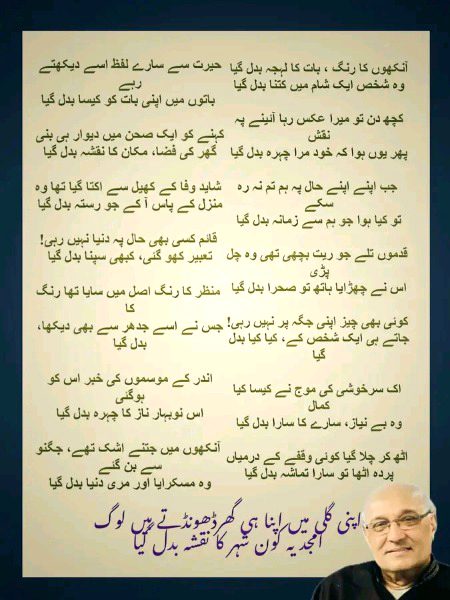 آنکھوں کا رنگ ، بات کا لہجہ بدل گیا
وہ شخص ایک شام میں کتنا بدل گیا
کچھ دن تو میرا عکس رہا آئینے پہ
نقش
پھر یوں ہوا کہ خود مرا چہرہ بدل گیا
جب اپنے اپنے حال پہ ہم تم نہ رہ
سکے
تو کیا ہوا جو ہم سے زمانہ بدل گیا
قدموں تلے جو ریت بچھی تھی وہ چل
پڑی
اس نے چھڑایا ہاتھ تو صحرا بدل گیا
کوئی بھی چیز اپنی جگہ پر نہیں رہی!
جاتے ہی ایک شخص کے، کیا کیا بدل
گیا
اک سرخوشی کی موج نے کیسا کیا
کمال
وہ بے نیاز، سارے کا سارا بدل گیا
اٹھ کر چلا گیا کوئی وقفے کے درمیاں
پردہ اٹھا تو سارا تماشہ بدل گیا
حیرت سے سارے لفظ اسے دیکھتے
رہے
باتوں میں اپنی بات کو کیسا بدل گیا
کہنے کو ایک صحن میں دیوار ہی بنی
گھر کی فضا، مکان کا نقشہ بدل گیا
شاید وفا کے کھیل سے اکتا گیا تھا وہ
منزل کے پاس آ کے جو رستہ بدل گیا
قائم کسی بھی حال پہ دنیا نہیں رہی!
تعبیر کھو گئی، کبھی سپنا بدل گیا
منظر کا رنگ اصل میں سایا تھا رنگ
کا
جس نے اسے جدھر سے بھی دیکھا،
بدل گیا
اندر کے موسموں کی خبر اس کو
ہوگئی
اس نوبہار ناز کا چہرہ بدل گیا
آنکھوں میں جتنے اشک تھے، جگنو
سے بن گئے
وہ مسکرایا اور مری دنیا بدل گیا
اپنی گلی میں اپنا ہی گھر ڈھونڈتے ہیں لوگ
امجد یہ کون شہر کا نقشہ بدل گیا